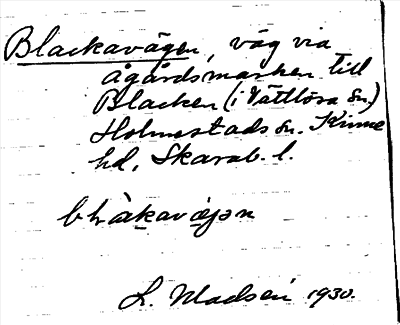 Blackavägen, väg via
ägårdsmarken till
Blacken (i Vättlösa sn.)
Holmestads sn. Kinne
hd, Skarab. l.
L. Madsén 1930.